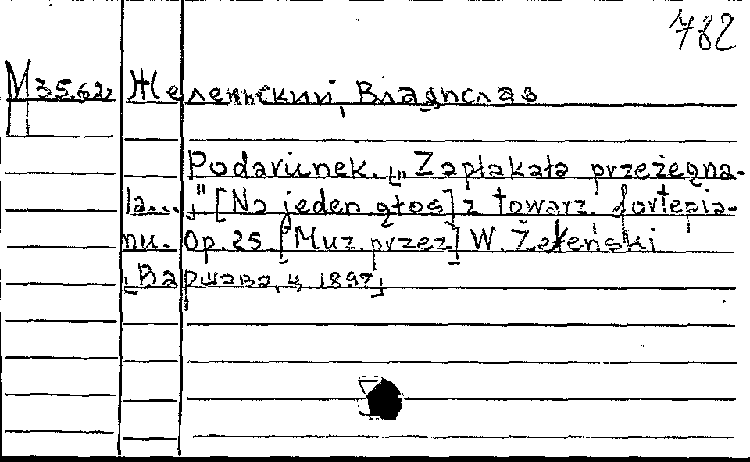 782
М 3562 Желеньский, Владислав
Podarunek. „Zapłakała przeżegna-
ła...„" [Na jeden głos] z towarz. fortepia-
nu. Op. 25. [Muz. przez] W. Żeleński
[Варшава, ц. 1897]